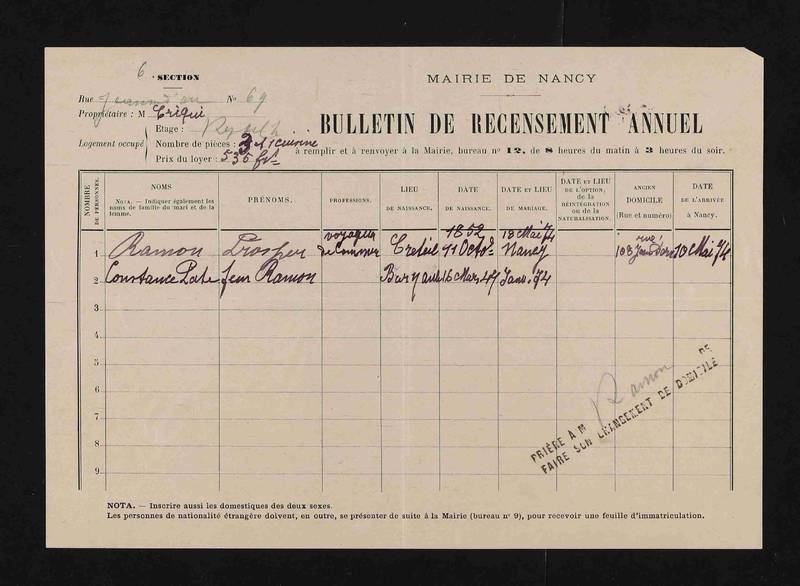 6 SECTION
MAIRIE DE NANCY
Rue Jeanne d'arc No 69
Propriétaire : M Criqui
Etage :
BULLETIN DE RECENSEMENT ANNUEL
Logement occupé
Nombre de pièces : 2 et 1 cuisine
Prix du loyer : 535 fr
à remplir et à renvoyer à la Mairie, bureau no 12, de 8 heures du matin à 3 heures du soir.
NOMBRE DE PERSONNES.
NOMS
NOTA. — Indiquer également les noms de famille du mari et de la femme.
PRÉNOMS.
PROFESSIONS.
LIEU DE NAISSANCE.
DATE DE NAISSANCE.
DATE ET LIEU DE MARIAGE.
DATE ET LIEU DE L'OPTION, de la RÉINTÉGRATION ou de la NATURALISATION.
ANCIEN DOMICILE (Rue et numéro)
DATE DE L'ARRIVÉE à Nancy.
1 Ramon Prosper voyageur de Commer Creteil 1852 11 Octo. 18 Mai 74 Nancy rue 108 Jeandarc 10 Mai 74
2 Constance fem Ramon 16 Mars 47 Janv. 74
3
4
5
6
7
8
9
PRIÈRE A M Ramon DE
FAIRE SON CHANGEMENT DE DOMICILE
NOTA. — Inscrire aussi les domestiques des deux sexes.
Les personnes de nationalité étrangère doivent, en outre, se présenter de suite à la Mairie (bureau no 9), pour recevoir une feuille d'immatriculation.